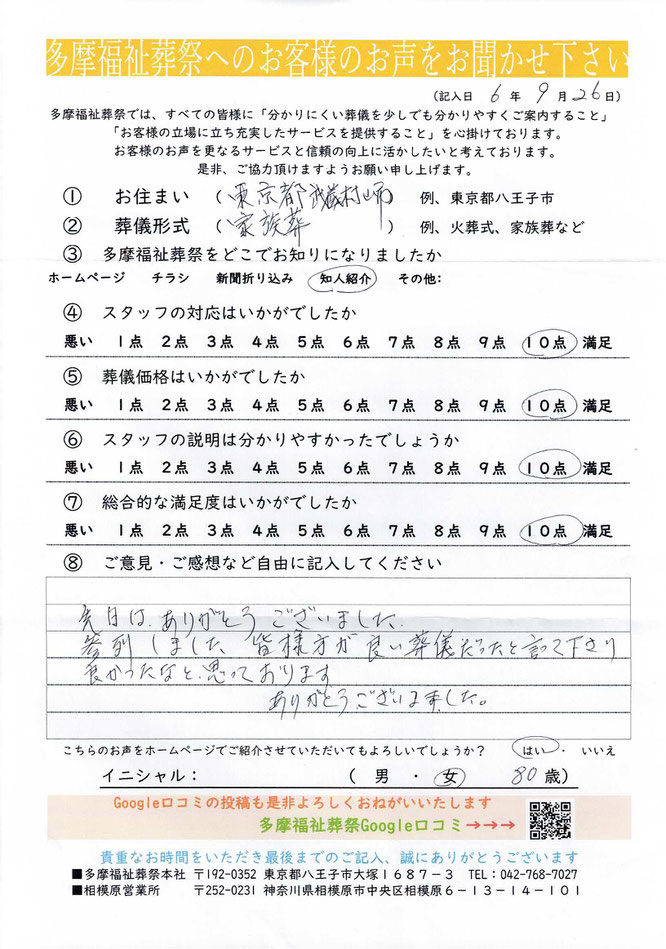 多摩福祉葬祭へのお客様のお声をお聞かせ下さい
(記入日 6 年 9 月 26 日)
多摩福祉葬祭では、すべての皆様に「分かりにくい葬儀を少しでも分かりやすくご案内すること」
「お客様の立場に立ち充実したサービスを提供すること」を心掛けております。
お客様のお声を更なるサービスと信頼の向上に活かしたいと考えております。
是非、ご協力頂けますようお願い申し上げます。
① お住まい (東京都武蔵村山市) 例、東京都八王子市
② 葬儀形式 (家族葬) 例、火葬式、家族葬など
③ 多摩福祉葬祭をどこでお知りになりましたか
ホームページ チラシ 新聞折り込み 知人紹介 その他:
④ スタッフの対応はいかがでしたか
悪い 1点 2点 3点 4点 5点 6点 7点 8点 9点 10点 満足
⑤ 葬儀価格はいかがでしたか
悪い 1点 2点 3点 4点 5点 6点 7点 8点 9点 10点 満足
⑥ スタッフの説明は分かりやすかったでしょうか
悪い 1点 2点 3点 4点 5点 6点 7点 8点 9点 10点 満足
⑦ 総合的な満足度はいかがでしたか
悪い 1点 2点 3点 4点 5点 6点 7点 8点 9点 10点 満足
⑧ ご意見・ご感想など自由に記入してください
先日は、ありがとうございました、
参列しました 皆様方が 良い葬儀だったと言って下さり
良かったなと、思っております
ありがとうございました。
こちらのお声をホームページでご紹介させていただいてもよろしいでしょうか? はい ・ いいえ
イニシャル: ( 男 ・ 女 80 歳)
Google口コミの投稿も是非よろしくおねがいいたします
多摩福祉葬祭Google口コミ→→→
貴重なお時間をいただき最後までのご記入、誠にありがとうございます
■多摩福祉葬祭本社 〒192-0352 東京都八王子市大塚1687-3 TEL:042-768-7027
■相模原営業所 〒252-0231 神奈川県相模原市中央区相模原6-13-14-101